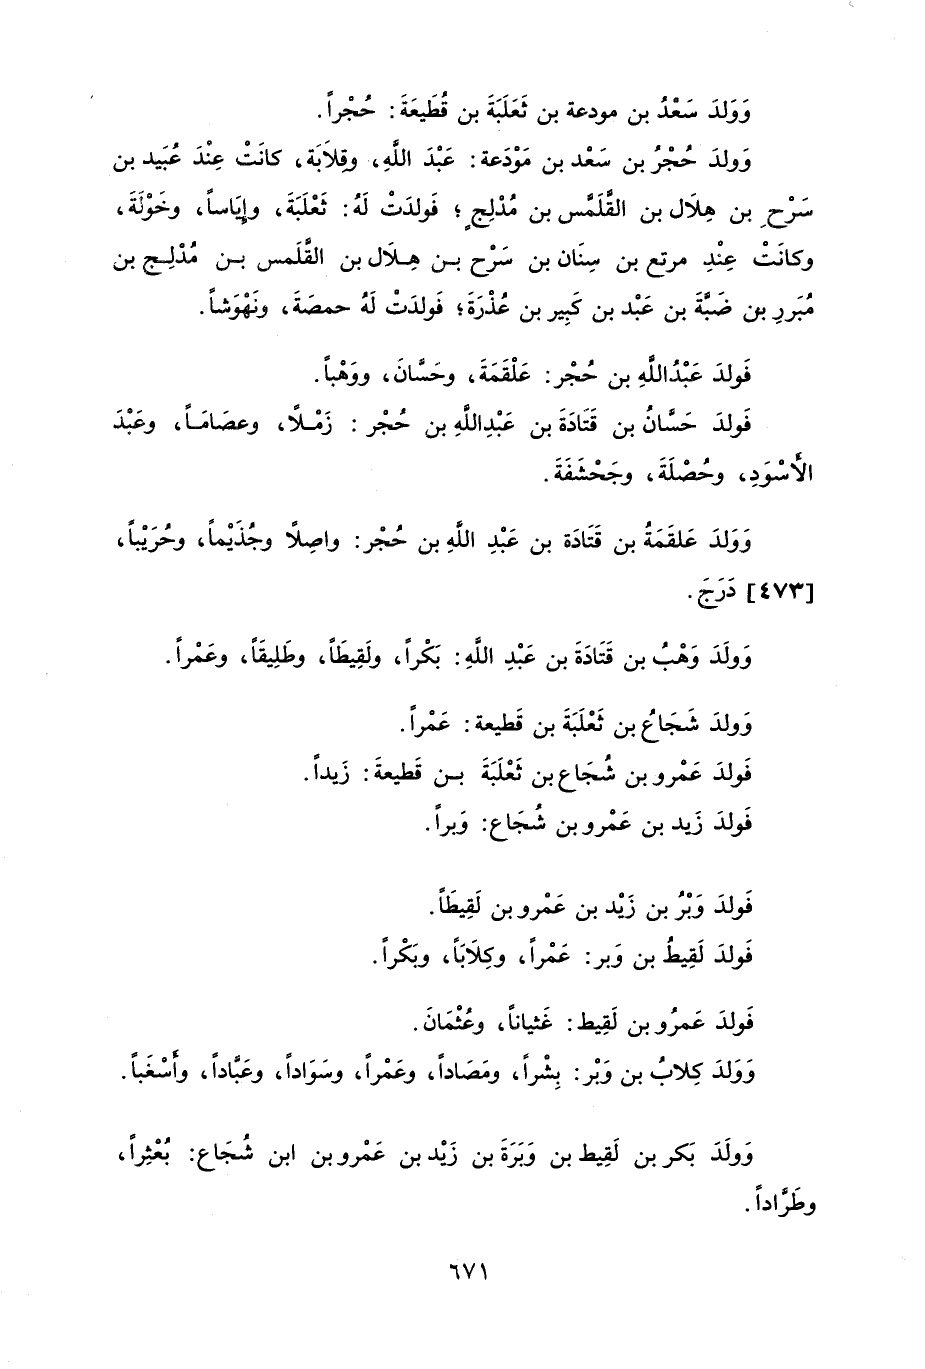 وَوَلدَ سَعْدُ بن مودعة بن ثَعَلَبَةَ بن قُطَيعَةَ: حُجْراً.
وَولدَ حُجْرُ بن سَعْد بن مَوْدَعة: عَبْدَ اللَّهِ، وقِلَابَة، كانَتْ عِنْدَ عُبَيد بن
سَرْحِ بن هِلَال بن القَّلَمَّس بن مُدْلِجٍ؛ فَولدَتْ لَهُ: ثَعْلَبَةَ، وإِيَاساً، وخَوْلَةَ،
وكانَتْ عِنْدِ مرتع بن سِنَان بن سَرْح بـن هِـلَال بن القَّلَمس بـن مُدْلِـج بن
مُبَررِ بن ضَبَّةَ بن عَبْد بن كَبِير بن عُذْرَةَ؛ فَولدَتْ لَهُ حمصَةَ، ونَهْوَشاً.
فَولدَ عَبْدُاللَّهِ بن حُجْر: عَلْقَمَةَ، وحَسَّانَ، ووَهْباً.
فَولدَ حَسَّانُ بن قَتَادَةَ بن عَبْدِاللَّهِ بن حُجْر : زَمْـلًا، وعصَامَـاً، وعَبْدَ
الأَسْوَدِ، وحُصْلَةَ، وجَحْشَفَةَ.
وَوَلدَ عَلقَمَةُ بن قَتَادَة بن عَبْدِ اللَّهِ بن حُجْر: واصِلًا وجُذَيْماً، وحُرَيْباً،
[٤٧٣] دَرَجَ.
وَولَدَ وَهْبُ بن قَتَادَةَ بن عَبْدِ اللَّهِ: بَكْراً، ولَقِيطَاً، وطَلِيقَاً، وعَمْراً.
وَولدَ شَجَاعُ بن ثَعْلَبَةَ بن قَطيعة: عَمْراً.
فَولدَ عَمْرو بن شُجَاع بن ثَعْلَبَةَ بـن قَطيعةَ: زَيداً.
فَولدَ زَيد بن عَمْرو بن شُجَاع: وَبراً.
فَولدَ وَبْرُ بن زَيْد بن عَمْرو بن لَقِيطَاً.
فَولدَ لَقِيطُ بن وَبر: عَمْراً، وكِلَابَاً، وبَكْراً.
فَولدَ عَمرُو بن لَقِيط: غَثياناً، وعُثْمَانَ.
وَوَلدَ كِلابُ بن وَبْر: بِشْراً، ومَصَاداً، وعَمْراً، وسَوَاداً، وعَبَّاداً، وأَسْغَباً.
وَولَدَ بَكر بن لَقِيط بن وَبَرَةَ بن زَيْد بن عَمْرو بن ابن شُجَاع: بُعْثِراً،
وطَرَّاداً.
٦٧١